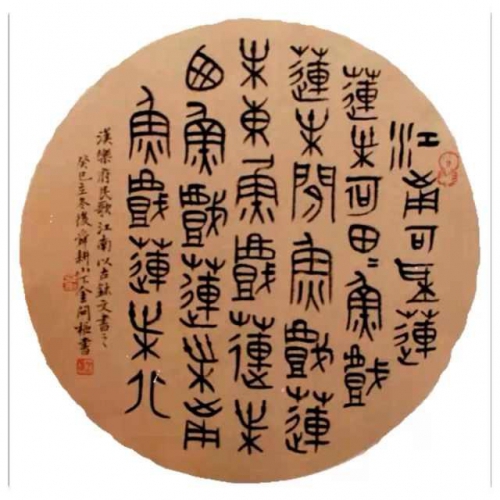 江南可采蓮
蓮葉何田〻魚戲
蓮葉間魚戲蓮
葉東魚戲蓮葉
西魚戲蓮葉南
魚戲蓮葉北
漢樂府民歌江南以古鉨文書之
癸巳立冬後舜耕山下金書